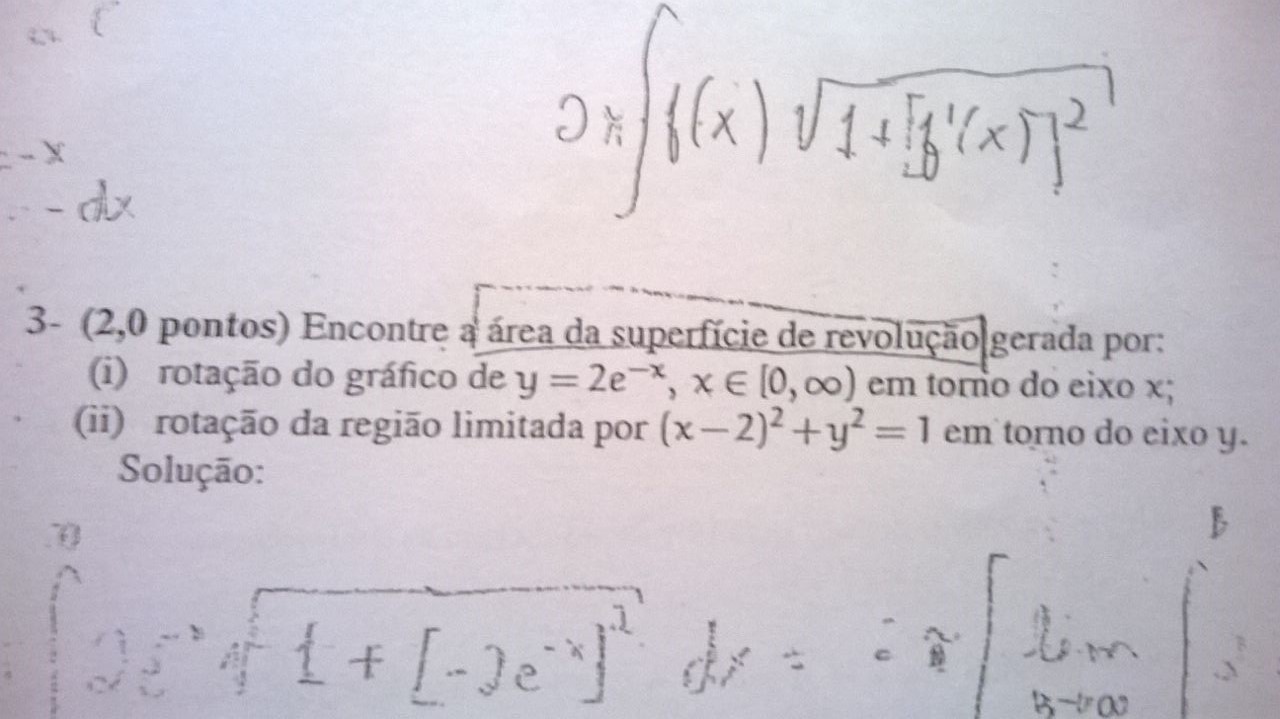 2π∫f(x) √1+[f'(x)]²
-x
- dx
3- (2,0 pontos) Encontre a área da superfície de revolução gerada por:
(i) rotação do gráfico de y = 2e⁻ˣ, x ∈ [0, ∞) em torno do eixo x;
(ii) rotação da região limitada por (x−2)² + y² = 1 em torno do eixo y.
Solução:
√1 + [-2e⁻ˣ]² dx = π [lim B→∞ ∫